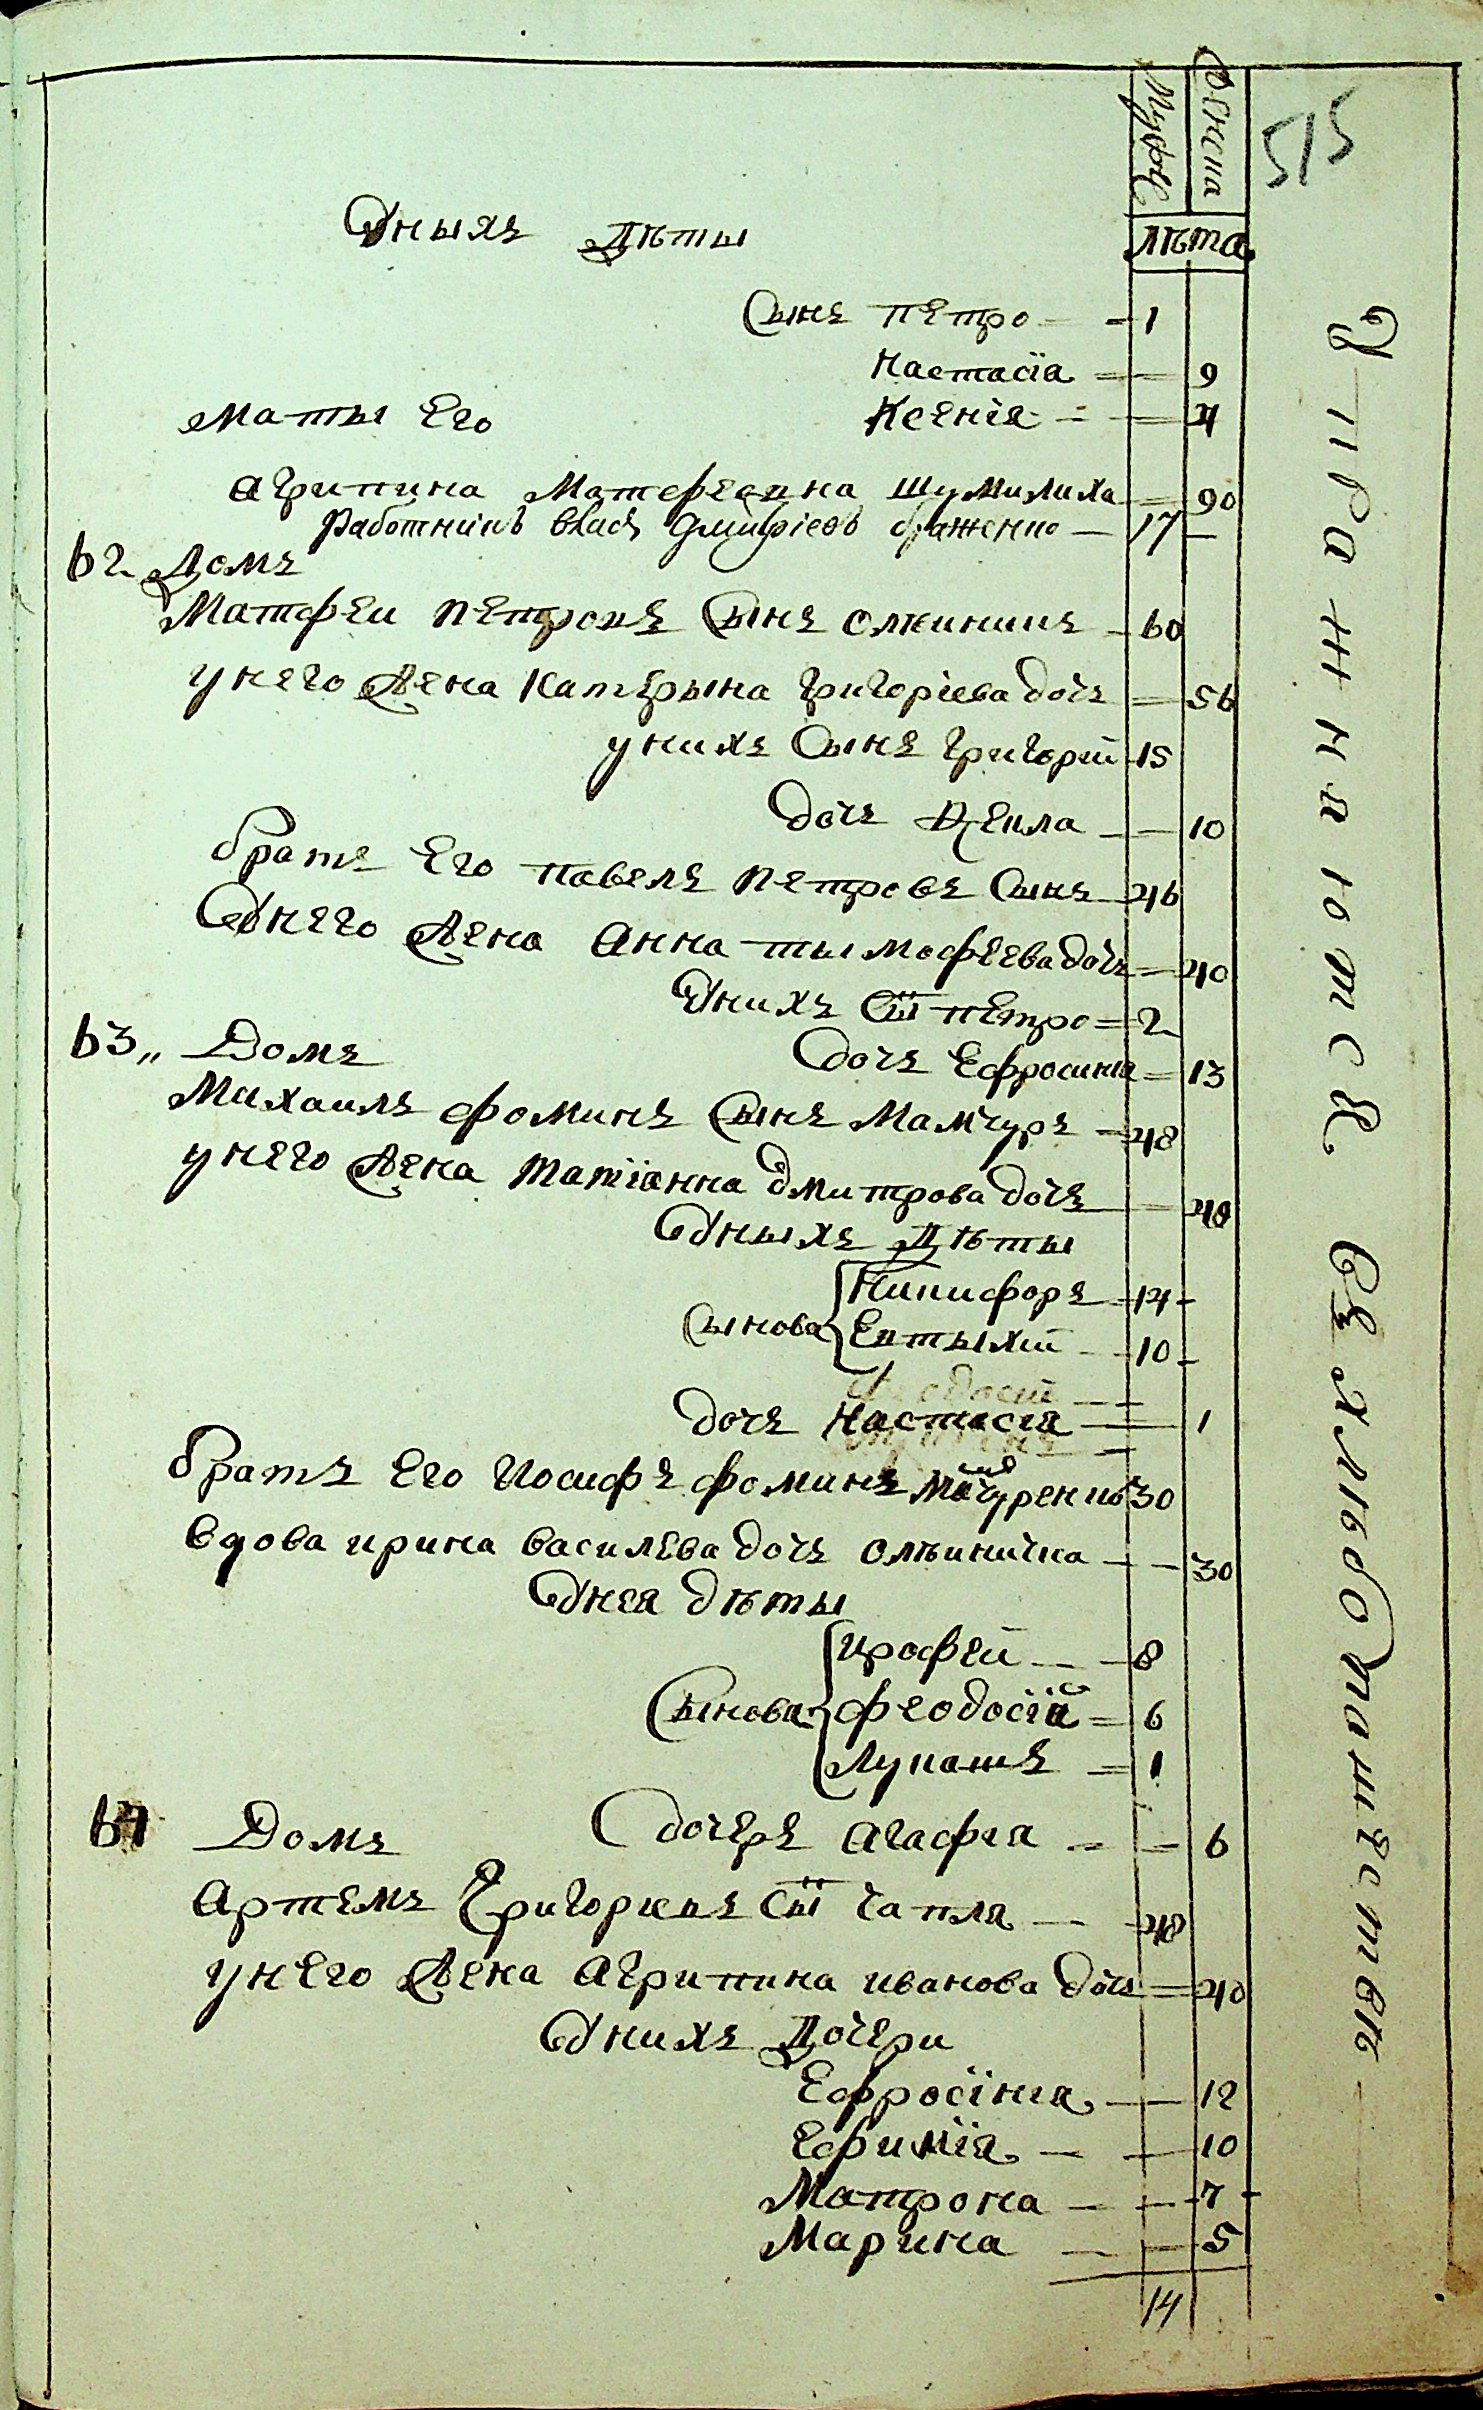 515
Мужес Женска
лѣта
У ныхъ дѣты
сынъ петро 1
настасїа 9
маты его ксенїя 4
агрипина матфеевна шумилиха 90
работникъ власъ дмитріевъ 17
62 домъ
матфеи петровъ сынъ олѣиникъ 60
у него жена катерына григорїева дочъ 56
у нихъ сынъ григорїй 15
дочъ фекла 10
братъ его павелъ петровъ сынъ 46
У него жена анна тымофеева дочъ 40
У нихъ сы петро 2
63 домъ дочъ ефросинїя 13
михаилъ фоминъ сынъ мамчуръ 48
у него жена татїанна дмитрова дочъ 48
У ныхъ дѣты
сынова никифоръ 14
евтыхїй 10
дочъ настасїя 1
братъ его иосифъ фоминъ 30
вдова ирина василева дочъ олѣиничка 30
У нея дѣты
ерофей 8
сынова феодосїй 6
лукашъ 1
64 домъ дочеръ агафїя 6
артемъ григориевъ сы чапля 48
у него жена агрипина иванова дочъ 40
У нихъ дочери
ефросїнїя 12
ефимїя 10
матрона 7
марина 5
14
Упражнаются въ хлѣбопашествѣ